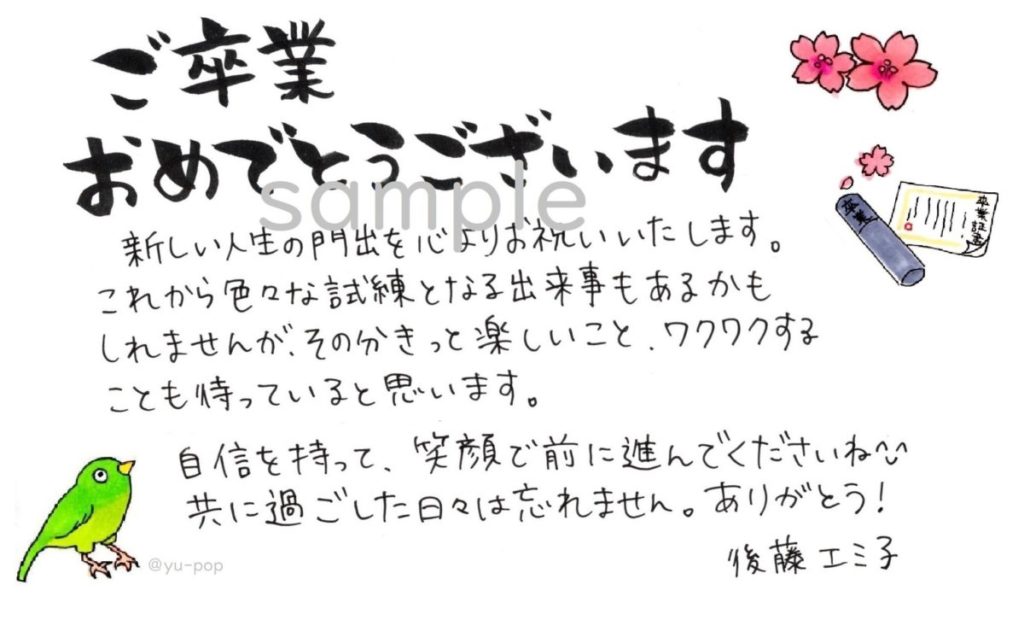 ご卒業
おめでとうございます
sample
新しい人生の門出を心よりお祝いいたします。
これから色々な試練となる出来事もあるかも
しれませんが、その分きっと楽しいこと、ワクワクする
ことも待っていると思います。
自信を持って、笑顔で前に進んでくださいね
共に過ごした日々は忘れません。ありがとう！
後藤エミ子
卒業
卒業証書
@yu-pop